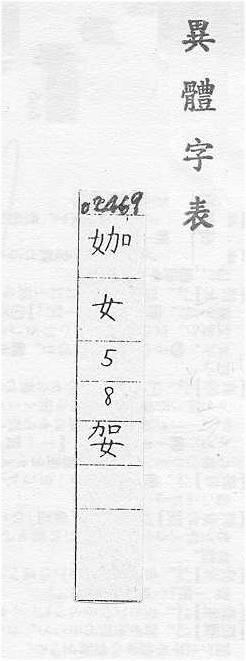 異體字表
02469
妿
女
5
8
妿